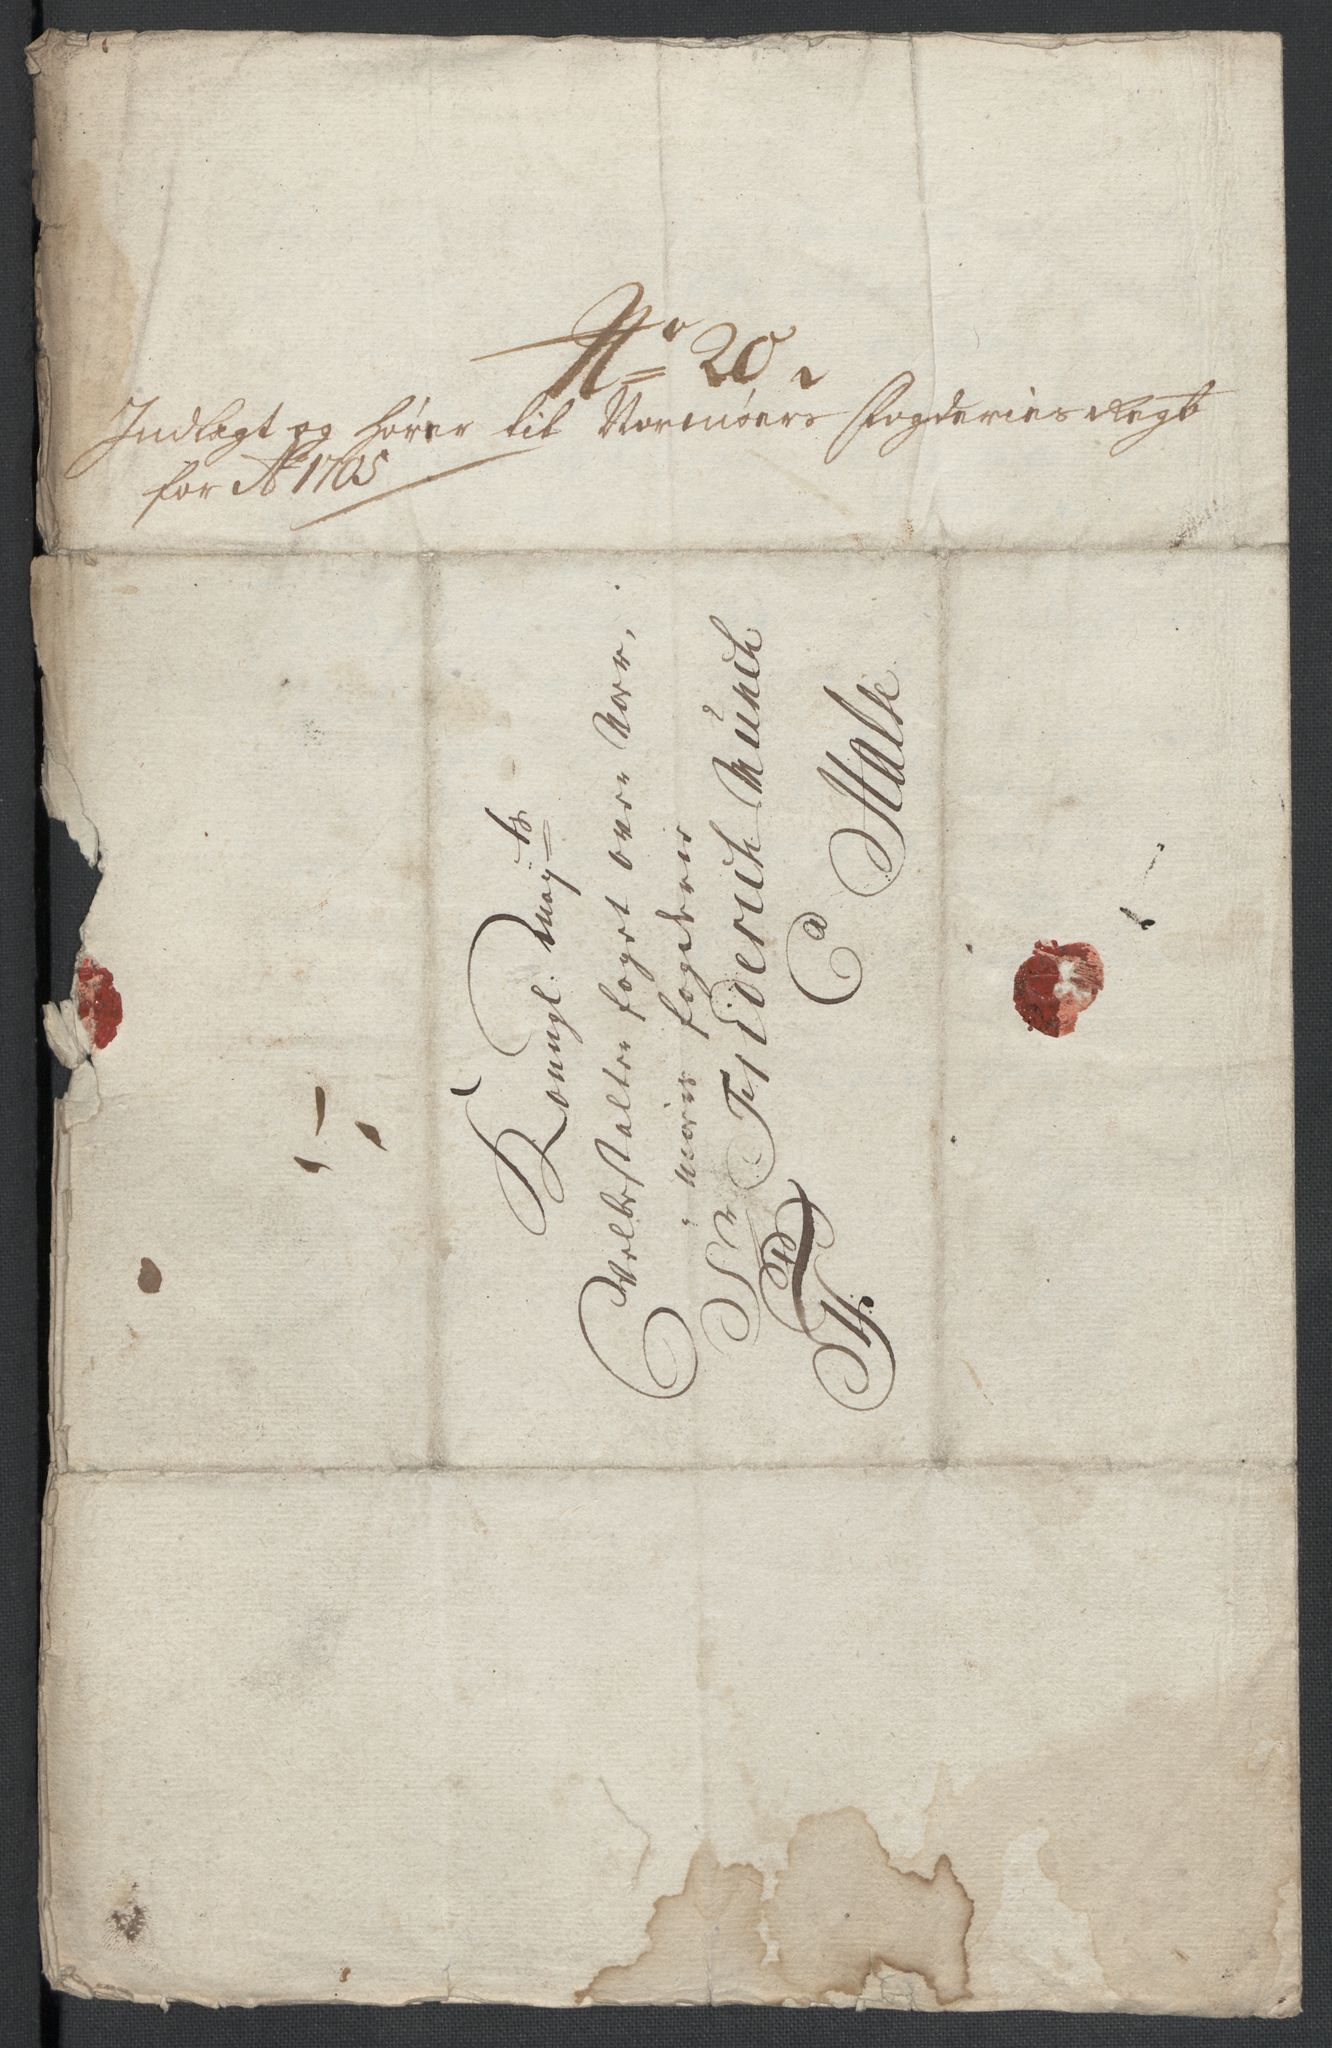 No 20
Indlagt og hører til Normøers Fogderies Regb
for Ao 1705
Kongl. Mayts
Velbestalter foget over Nor,
møris fogderie
Sr Friderich Munch
a Halse